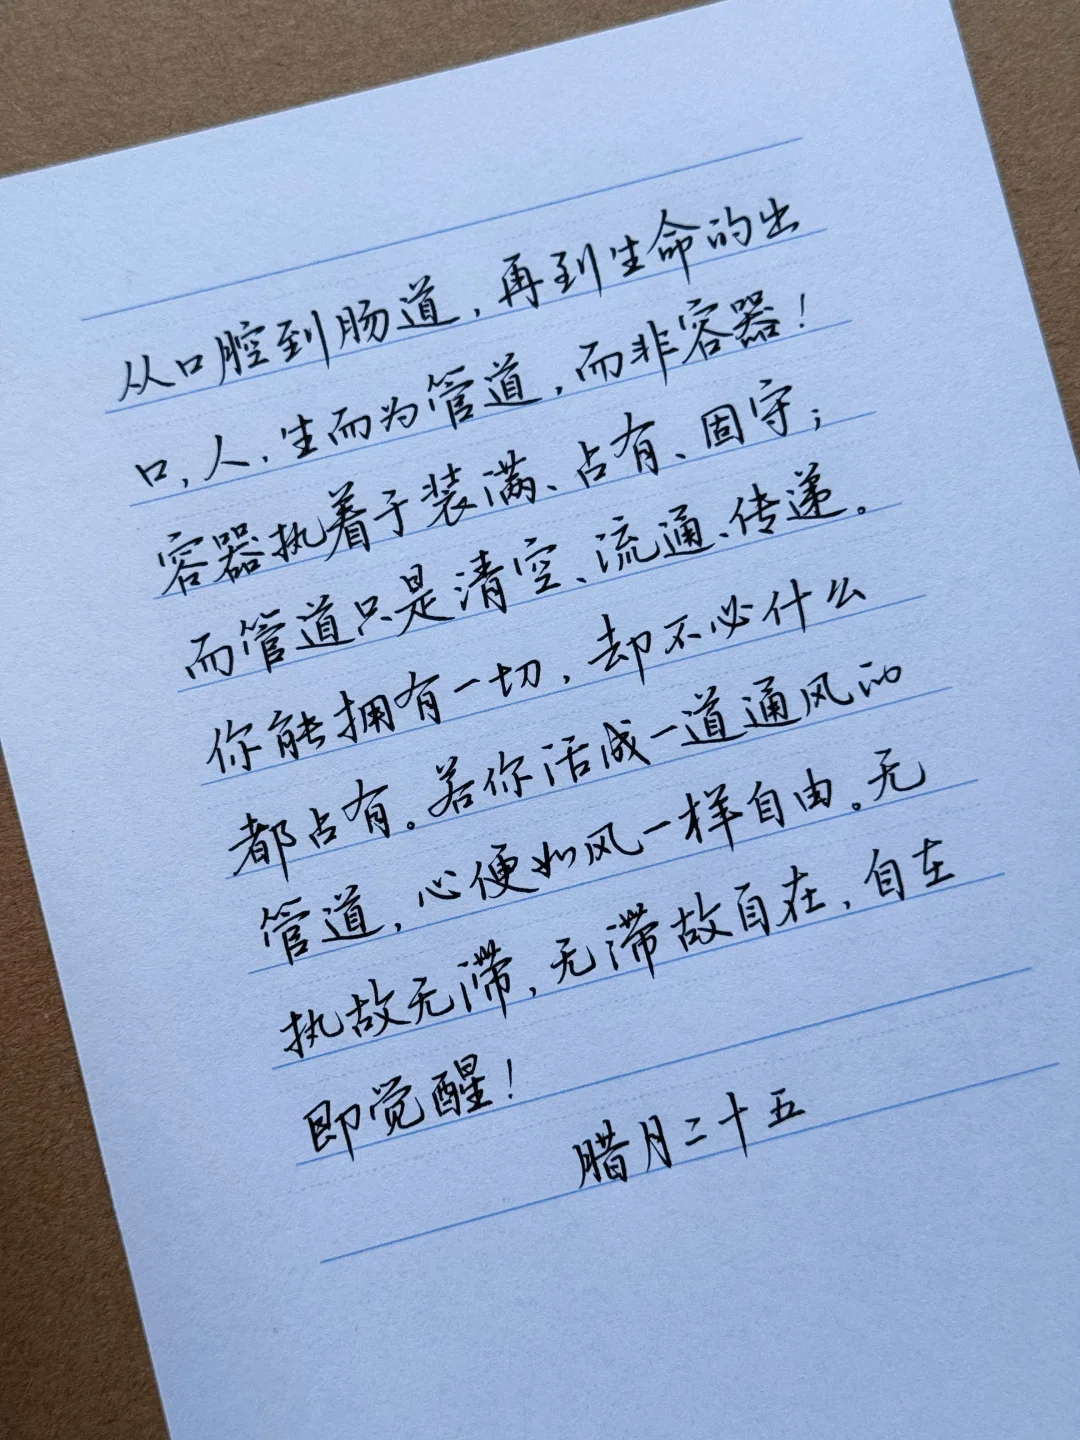 从口腔到肠道，再到生命的出
口，人，生而为管道，而非容器！
容器执着于装满、占有、固守；
而管道只是清空、流通、传递。
你能拥有一切，却不必什么
都占有。若你活成一道通风的
管道，心便如风一样自由。无
执故无滞，无滞故自在，自在
即觉醒！
腊月二十五